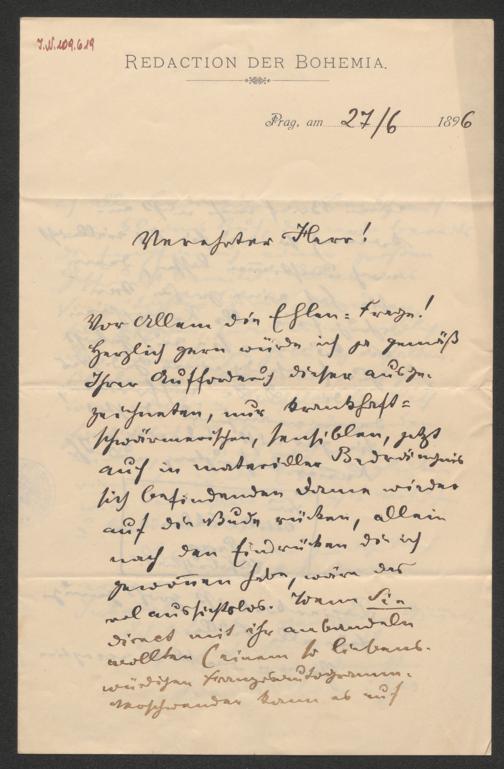 I.N. 109.619
REDACTION DER BOHEMIA.
Prag, am 27/6 1896
Verehrter Herr!
Vor Allem die Ehlen-Frage!
Herzlich gern würde ich ja gemäß
Ihrer Aufforderung dieser ausge-
zeichneten, nur krankhaft-
schwärmerischen, sensiblen, jetzt
auch in materieller Bedrängnis
sich befindenden Dame wieder
auf die Bude rücken, allein
nach den Eindrücken die ich
gewonnen habe, wäre das
wol aussichtslos. Wenn Sie
direct mit ihr anbandeln
wollten (einem so liebens-
würdigen
kann es auf